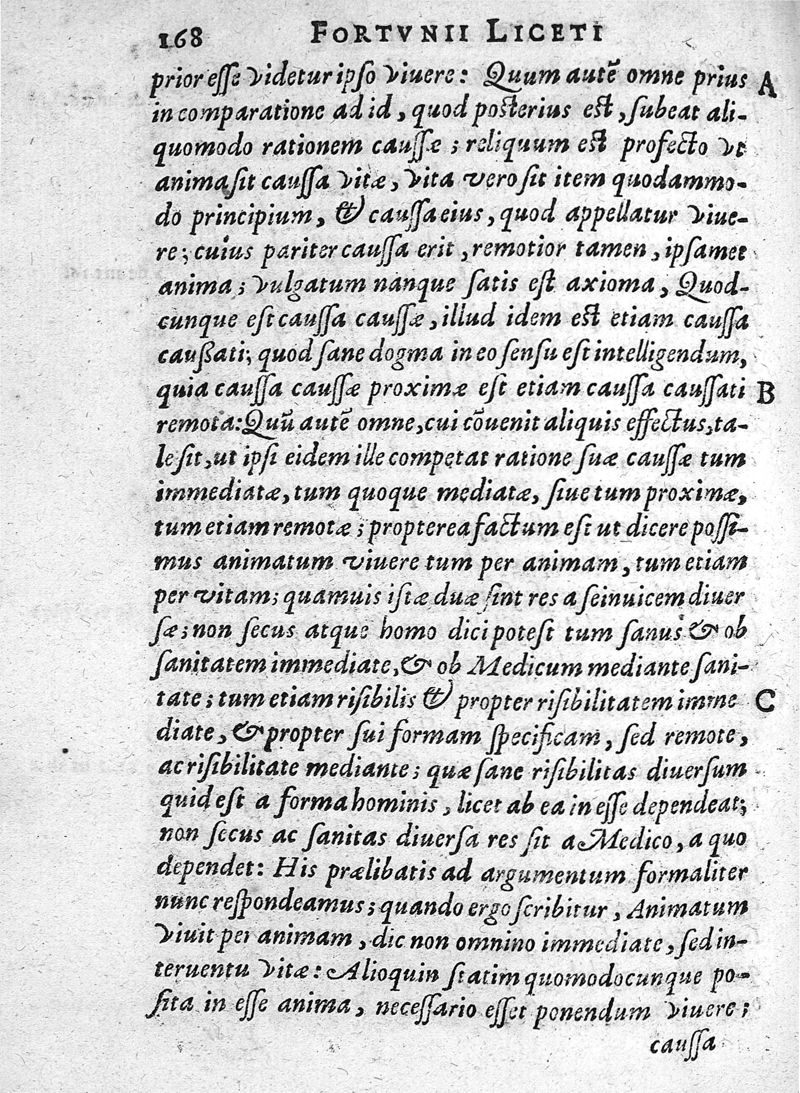 168 FORTVNII LICETI
prior esse videtur ipso viuere: Quum autẽ omne prius A
in comparatione ad id, quod posterius est, subeat ali-
quomodo rationem caussæ; reliquum est profecto vt
anima sit caussa vitæ, vita vero sit item quodammo-
do principium, & caussa eius, quod appellatur viue-
re; cuius pariter caussa erit, remotior tamen, ipsamet
anima; vulgatum nanque satis est axioma, Quod-
cunque est caussa caussæ, illud idem est etiam caussa
caußati; quod sane dogma in eo sensu est intelligendum,
quia caussa caussæ proximæ est etiam caussa caussati B
remota: Quũ autẽ omne, cui cõuenit aliquis effectus, ta-
le sit, ut ipsi eidem ille competat ratione suæ caussæ tum
immediatæ, tum quoque mediatæ, siue tum proximæ,
tum etiam remotæ; propterea factum est ut dicere possi-
mus animatum viuere tum per animam, tum etiam
per vitam; quamuis istæ duæ sint res a seinuicem diuer
sæ; non secus atque homo dici potest tum sanus & ob
sanitatem immediate, & ob Medicum mediante sani-
tate; tum etiam risibilis & propter risibilitatem imme C
diate, & propter sui formam specificam, sed remote,
ac risibilitate mediante; quæ sane risibilitas diuersum
quid est a forma hominis, licet ab ea in esse dependeat;
non secus ac sanitas diuersa res sit a Medico, a quo
dependet: His prælibatis ad argumentum formaliter
nunc respondeamus; quando ergo scribitur, Animatum
viuit per animam, dic non omnino immediate, sed in-
teruentu vitæ: Alioquin statim quomodocunque po-
sita in esse anima, necessario esset ponendum viuere;
caussa